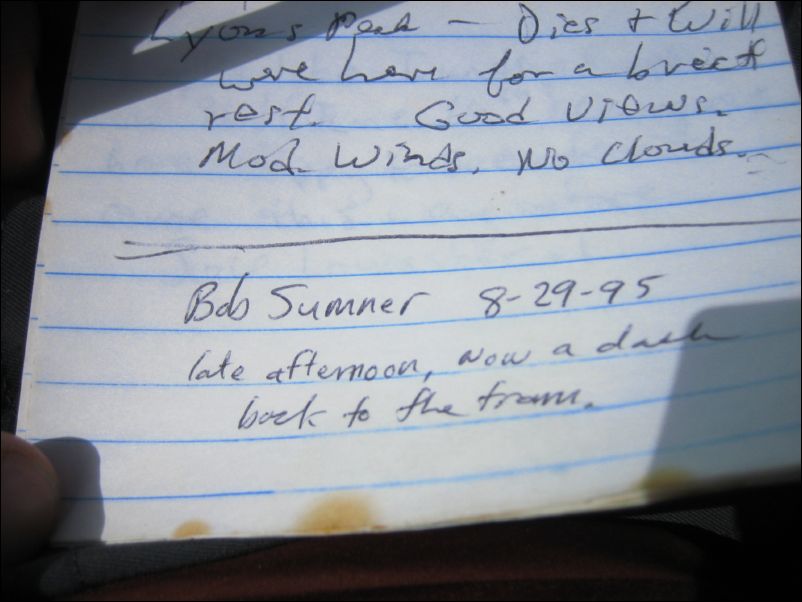 Lyons Peak — Dies + Will
were here for a brief
rest. Good views.
Mod. Winds, No Clouds.
Bob Sumner 8-29-95
late afternoon, now a dash
back to the tram.